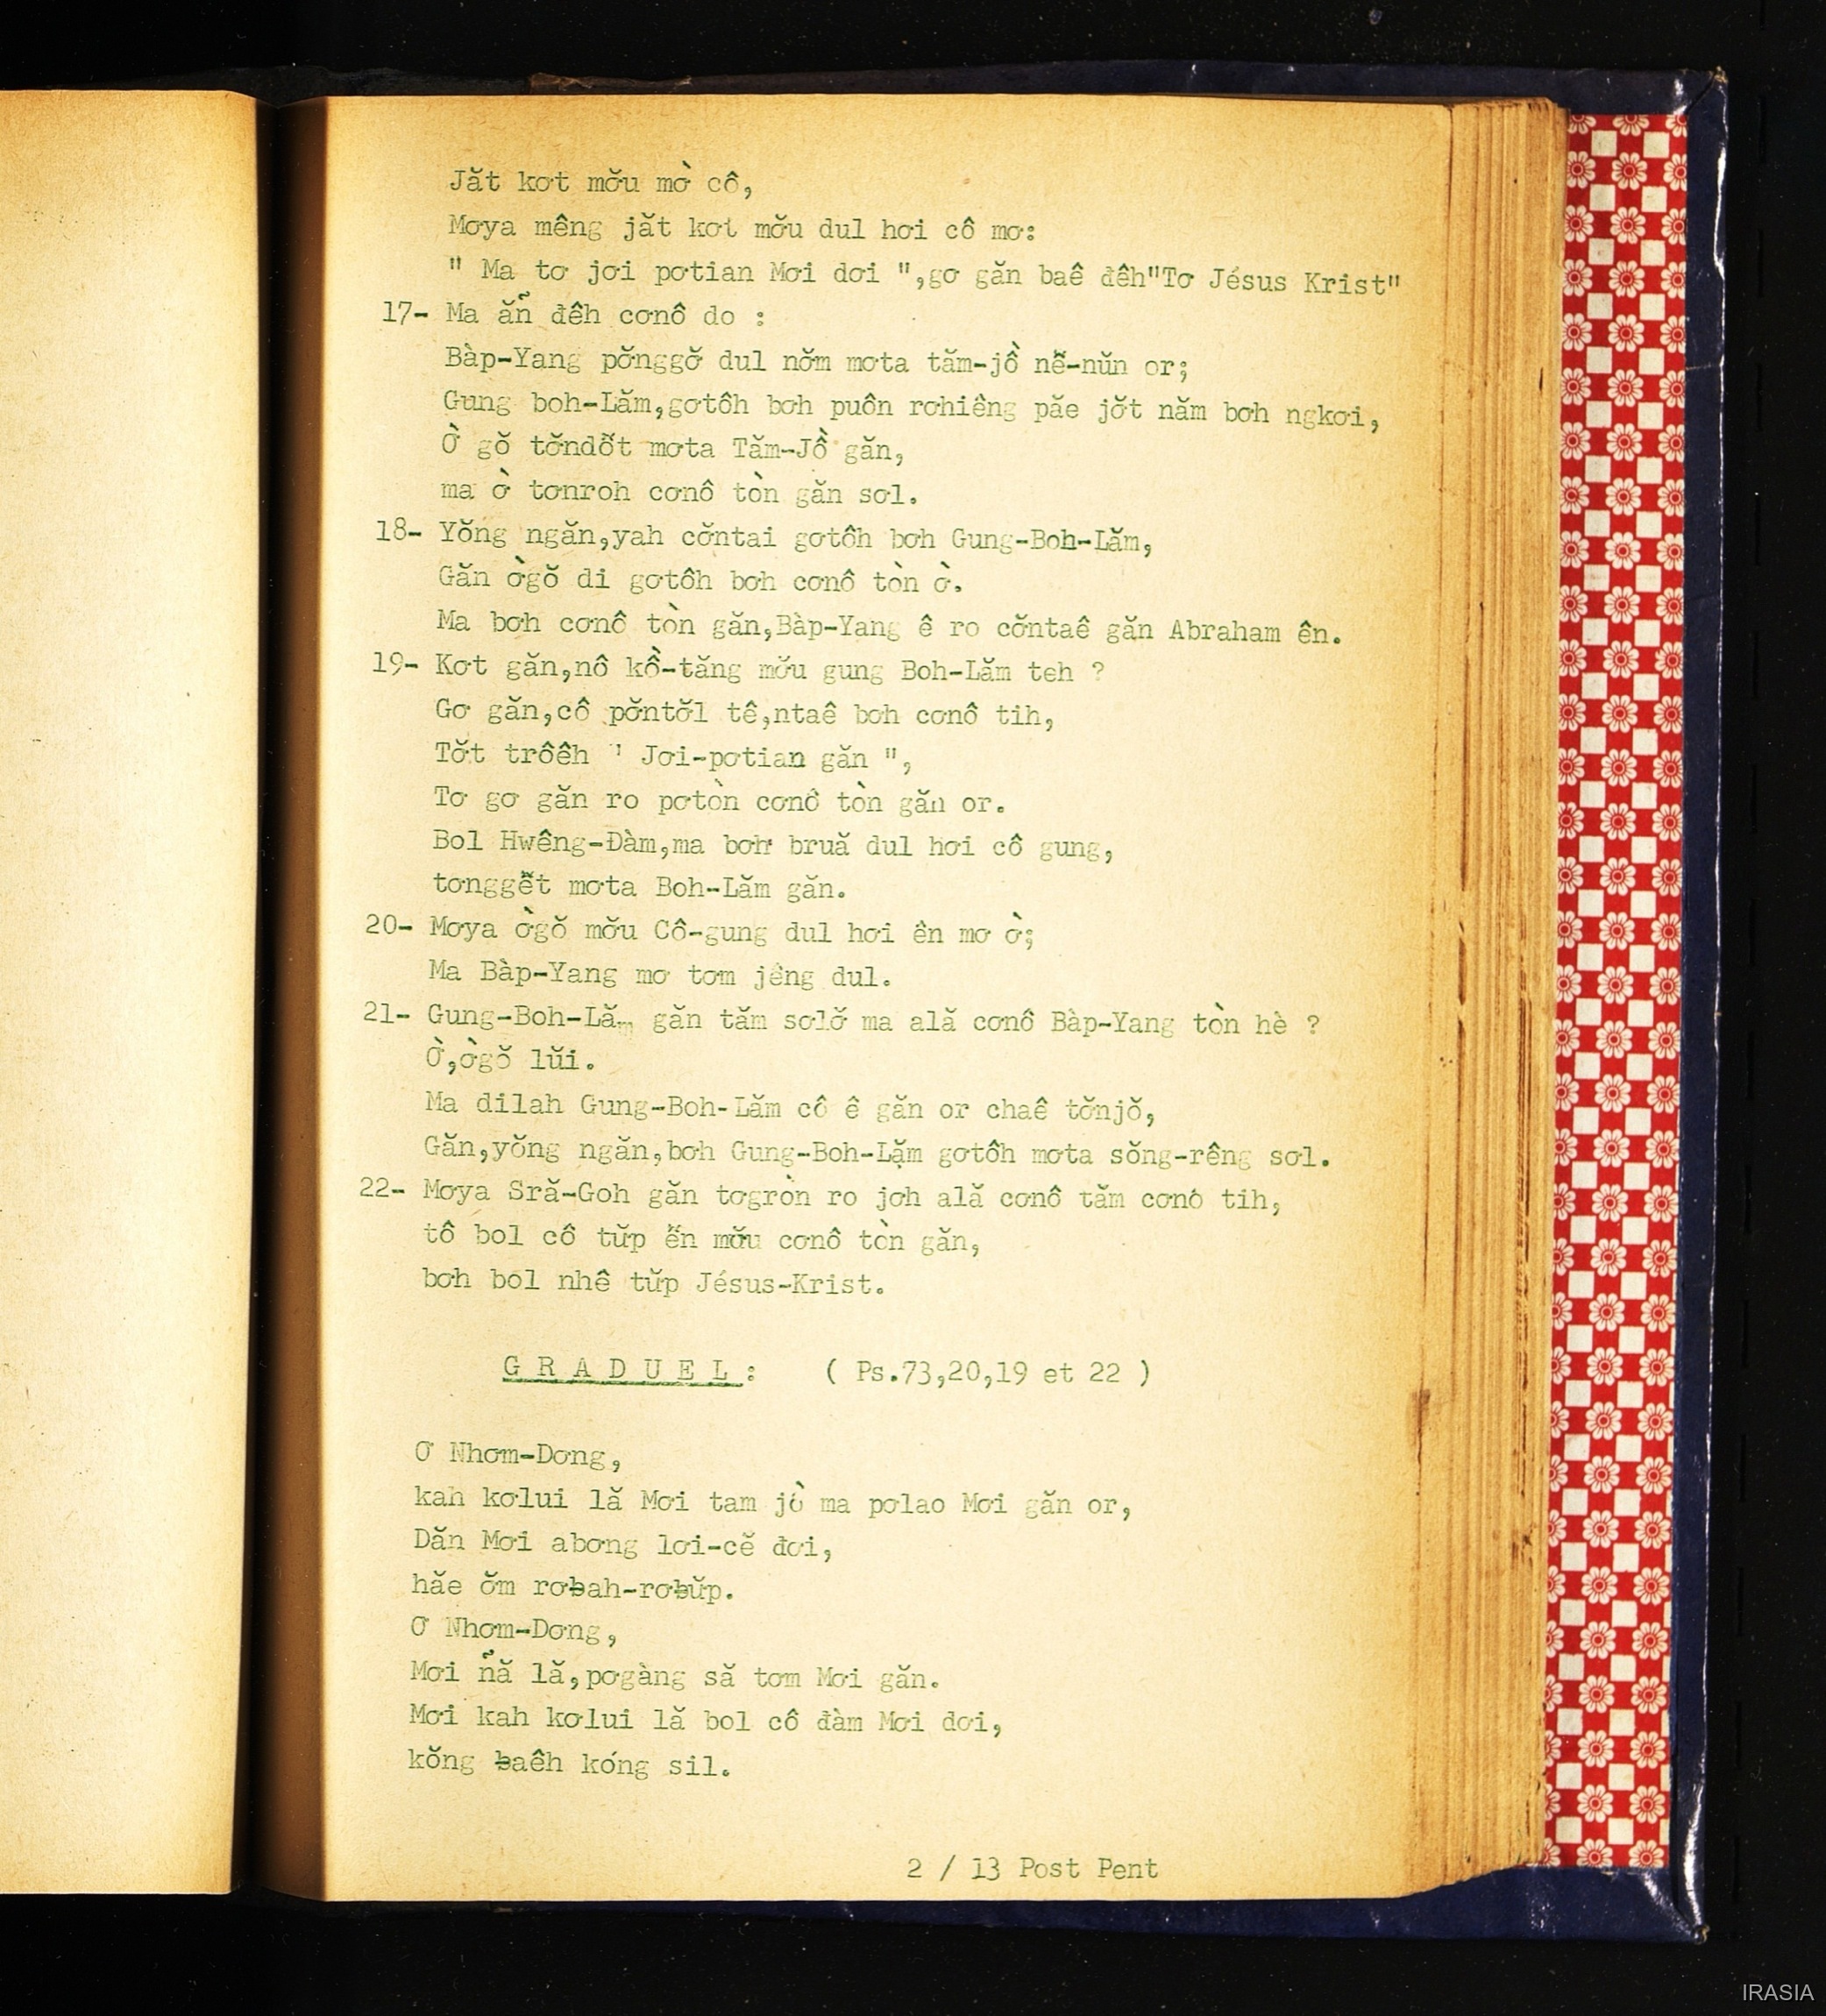 Jăt kơt mơ̆u mờ cô,
Mơya mêng jăt kơt mơ̆u dul hơi cô mơ:
" Ma tơ jơi pơtian Mơi dơi ",gơ găn baê đêh"Tơ Jésus Krist"
17- Ma ẵn đêh cơnô do :
Bàp-Yang pơ̆nggơ̆ dul nơ̆m mơta tăm-jồ nễ-nŭn or;
Gung boh-Lăm,gơtôh bơh puôn rơhiêng păe jơ̆t năm bơh ngkơi,
Ờ gŏ tơ̆ndơ̆t mơta Tăm-Jồ găn,
ma ờ tơnroh cơnô tòn găn sơl.
18- Yŏng ngăn,yah cơ̆ntai gơtôh bơh Gung-Boh-Lăm,
Găn ờgŏ di gơtôh bơh cơnô tòn ờ.
Ma bơh cơnô tòn găn,Bàp-Yang ê ro cơ̆ntaê găn Abraham ên.
19- Kơt găn,nô kồ-tăng mơ̆u gung Boh-Lăm teh ?
Gơ găn,cô pơ̆ntơ̆l tê,ntaê bơh cơnô tih,
Tơ̆t trôêh " Jơi-pơtian găn ",
Tơ gơ găn ro pơtòn cơnô tòn găn or.
Bol Hwêng-Đàm,ma bơh bruă dul hơi cô gung,
tơnggễt mơta Boh-Lăm găn.
20- Mơya ờgŏ mơ̆u Cô-gung dul hơi ên mơ ờ;
Ma Bàp-Yang mơ tơm jêng dul.
21- Gung-Boh-Lăm găn tăm sơlơ̆ ma ală cơnô Bàp-Yang tòn hè ?
Ờ,ờgŏ lŭi.
Ma dilah Gung-Boh-Lăm cô ê găn or chaê tơ̆njŏ,
Găn,yŏng ngăn,bơh Gung-Boh-Lặm gơtôh mơta sŏng-rêng sơl.
22- Mơya Sră-Goh găn tơgròn ro jơh ală cơnô tăm cơnô tih,
tô bol cô tư̆p ễn mơ̆u cơnô tòn găn,
bơh bol nhê tư̆p Jésus-Krist.
G R A D U E L : ( Ps.73,20,19 et 22 )
Ơ Nhơm-Dơng,
kah kơlui lă Mơi tam jồ ma pơlao Mơi găn or,
Dăn Mơi abơng lơi-cĕ đơi,
hăe ơ̆m rơƀah-rơƀŭp.
Ơ Nhơm-Dơng,
Mơi n̉ă lă,pơgàng să tơm Mơi găn.
Mơi kah kơlui lă bol cô đàm Mơi dơi,
kŏng ƀaêh kóng sil.
2 / 13 Post Pent
IRASIA